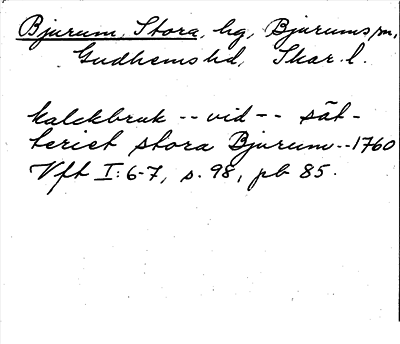 Bjurum, Stora, hg, Bjurums sn,
Gudhems hd, Skar. l.
kalckbruk -- vid -- sät-
teriet stora Bjurum -- 1760
Vft I: 6-7, s. 98, pb 85.